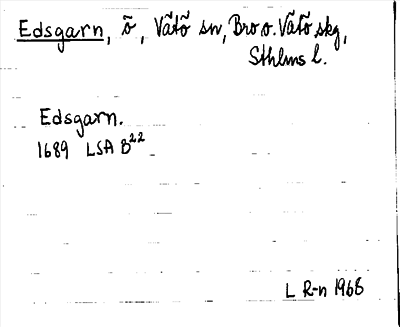 Edsgarn, ö, Vätö sn, Bro o. Vätö skg,
Sthlms l.
Edsgarn.
1689 LSA B22
L R-n 1968